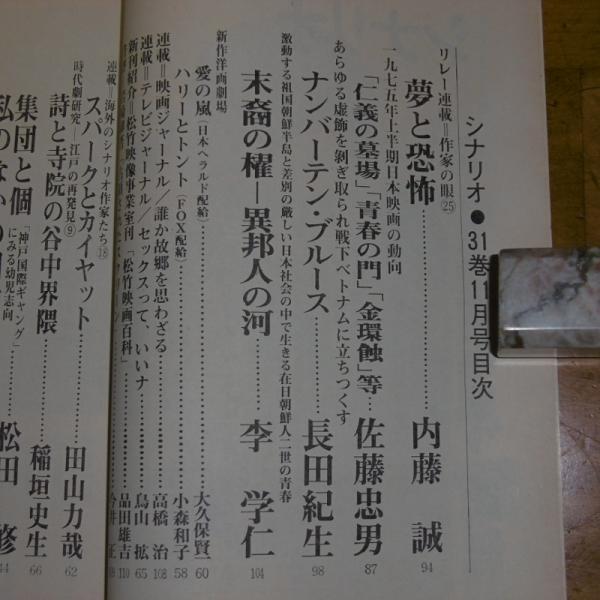 シナリオ●31巻11月号目次
リレー連載＝作家の眼㉕
夢と恐怖…………内藤 誠 94
一九七五年上半期日本映画の動向
「仁義の墓場」「青春の門」「金環蝕」等…佐藤忠男 87
あらゆる虚飾を剝ぎ取られ戦下ベトナムに立ちつくす
ナンバーテン・ブルース…………長田紀生 98
激動する祖国朝鮮半島と差別の厳しい日本社会の中で生きる在日朝鮮人二世の青春
末裔の櫂―異邦人の河…………李 学仁 104
新作洋画劇場
愛の嵐（日本ヘラルド配給）…………大久保賢一 60
ハリーとトント（FOX配給）…………小森和子 58
連載＝映画ジャーナル／誰か故郷を思わざる…………高橋 治 108
連載＝テレビジャーナル／セックスって、いいナ…………鳥山 拡 65
新刊紹介＝松竹映像事業室刊「松竹映画百科」…………品田雄吉 110
今井 正
連載＝海外のシナリオ作家たち⑱
スパークとカイヤット…………田山力哉 62
時代劇研究―江戸の再発見⑨
詩と寺院の谷中界隈…………稲垣史生 66
集団と個「神戸国際ギャング」にみる幼児志向…松田 修 44
私のない